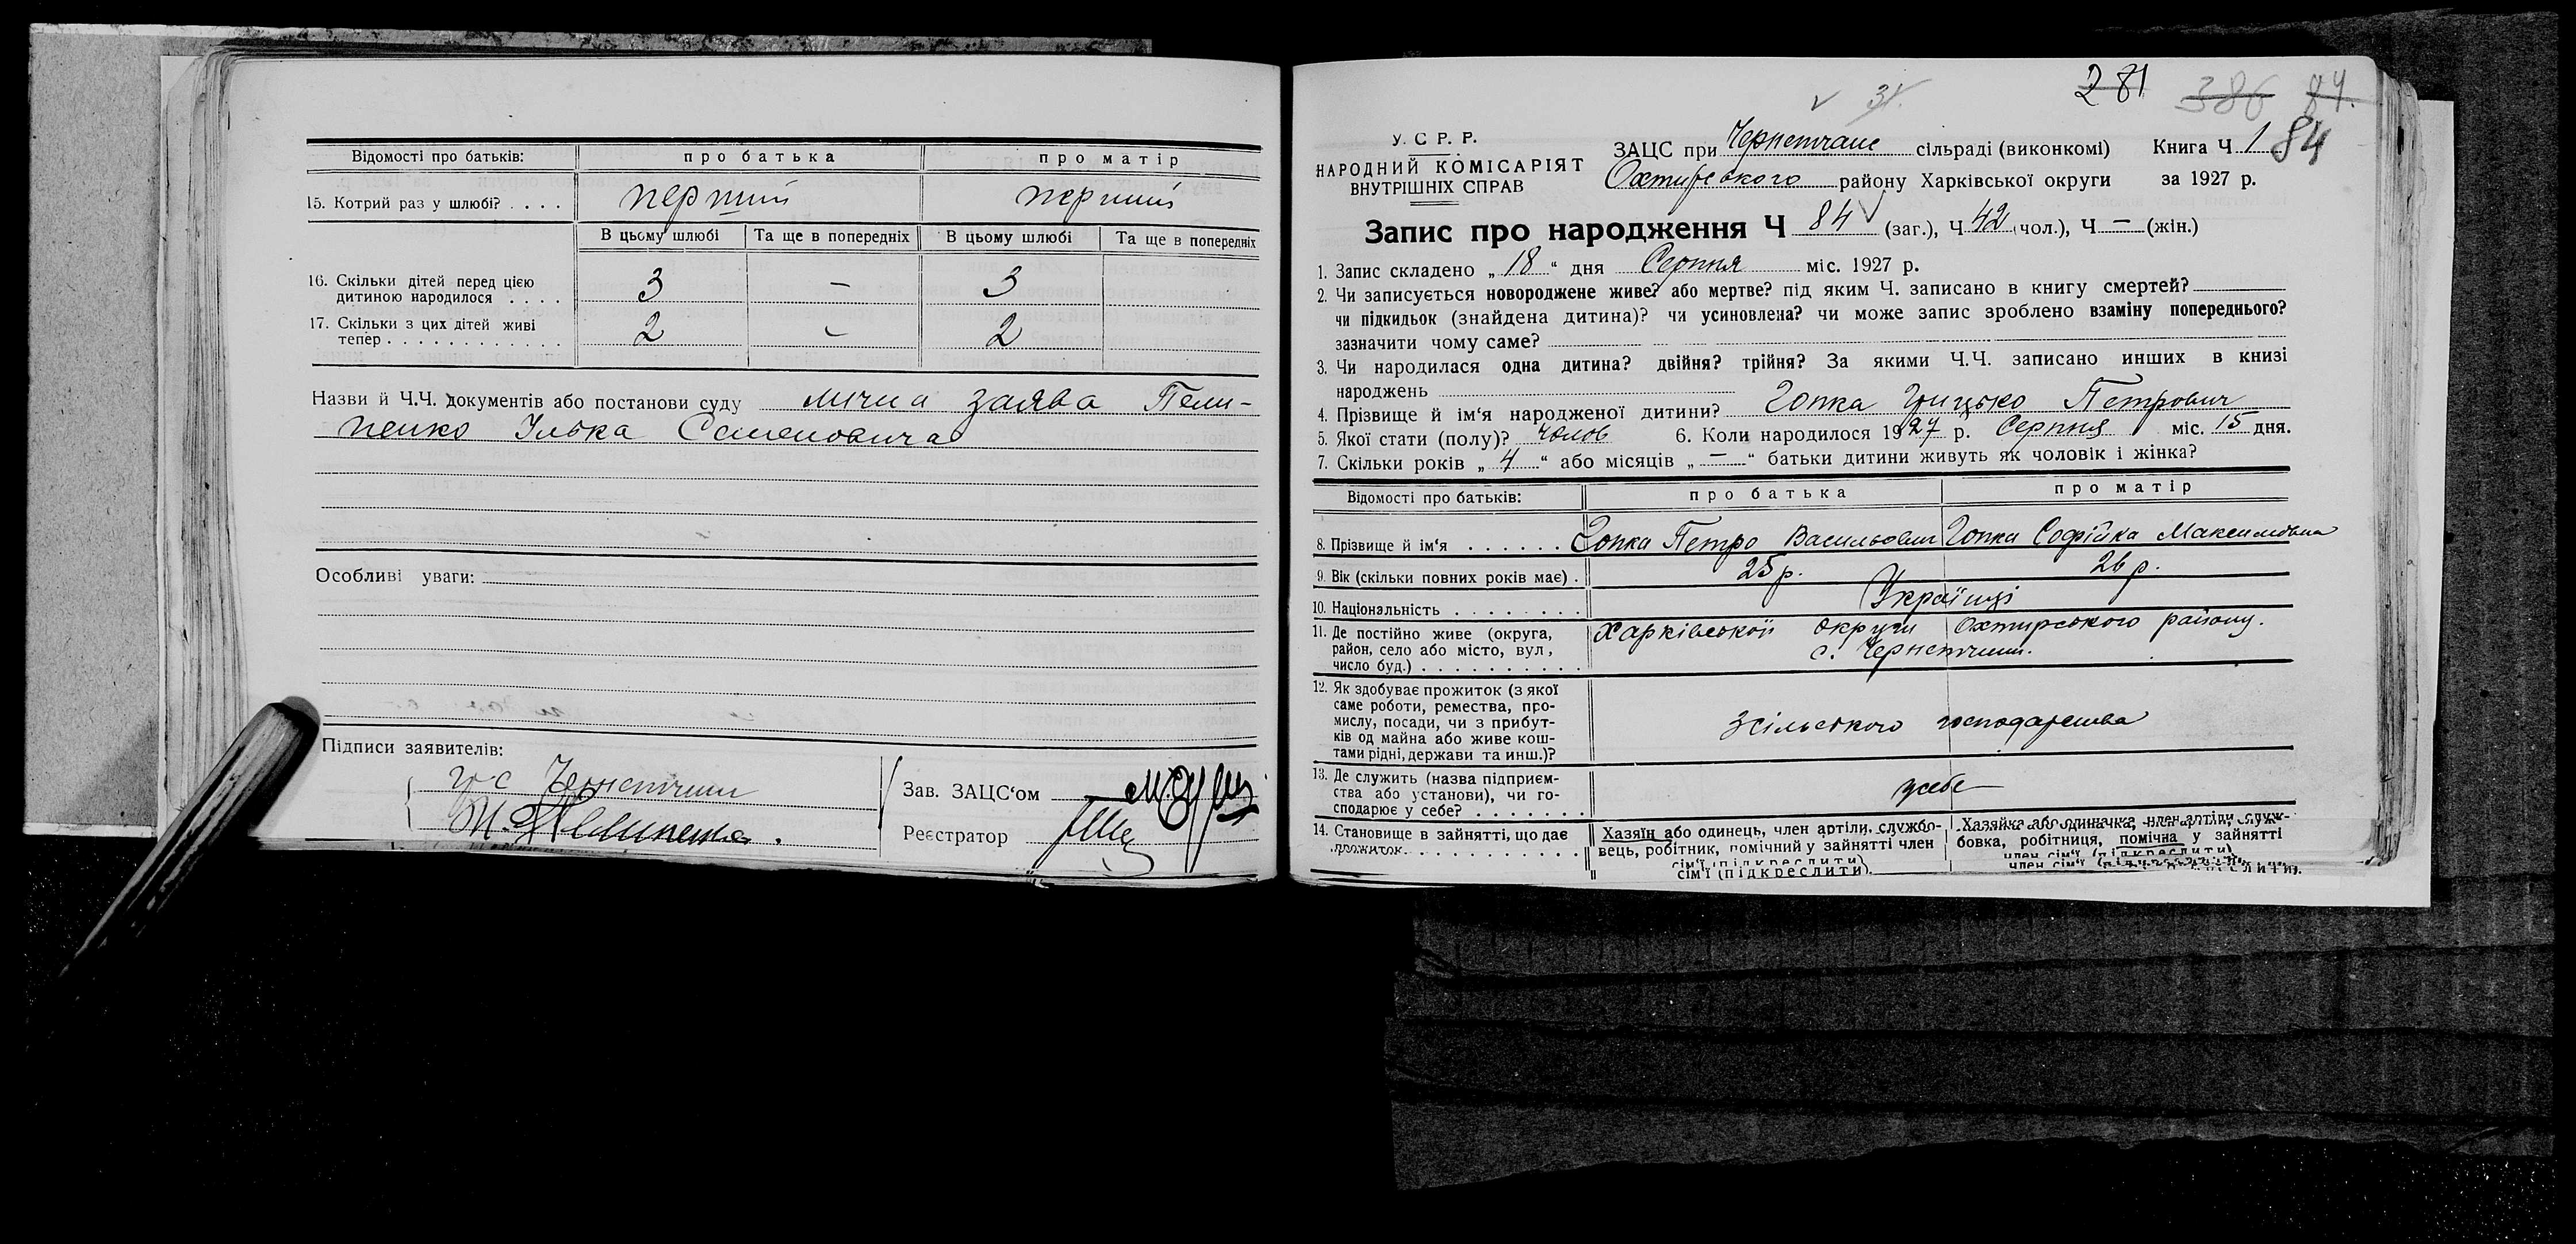 Відомості про батьків: про батька про матір
15. Котрий раз у шлюбі? . . . . перший перший
В цьому шлюбі Та ще в попередніх В цьому шлюбі Та ще в попередніх
16. Скільки дітей перед цією
дитиною народилося . . . . 3 – 3
17. Скільки з цих дітей живі
тепер . . . . . . . . . . . . . 2 – 2
Назви й Ч.Ч. документів або постанови суду лична заява Пели-
пенко Ілька Семеновича
Особливі уваги:
Підписи заявителів:
гр. с Чернетчини
Зав. ЗАЦС‘ом
И. Пелипенко.
Реєстратор
V 31. 281 386 84.
У. С Р. Р.
НАРОДНИЙ КОМІСАРІЯТ
ВНУТРІШНІХ СПРАВ
ЗАЦС при Чернетчане сільраді (виконкомі) Книга Ч 1 84
Охтирського району Харківської округи за 1927 р.
Запис про народження Ч 84 (заг.), Ч 42 (чол.), Ч – (жін.)
1. Запис складено „ 18 “ дня Серпня міс. 1927 р.
2. Чи записується новороджене живе? або мертве? під яким Ч. записано в книгу смертей?
чи підкидьок (знайдена дитина)? чи усиновлена? чи може запис зроблено взаміну попереднього?
зазначити чому саме?
3. Чи народилася одна дитина? двійня? трійня? За якими Ч.Ч. записано инших в книзі
народжень
4. Прізвище й ім‘я народженої дитини? Гопка Грицько Петрович
5. Якої стати (полу)? чолов 6. Коли народилося 1927 р. Серпня міс. 15 дня.
7. Скільки років „ 4 “ або місяців „ – “ батьки дитини живуть як чоловік і жінка?
Відомості про батьків: про батька про матір
8. Прізвище й ім‘я . . . . . . Гопка Петро Васильович Гопка Софійка Максимовна
9. Вік (скільки повних років має) . 25 р. 26 р.
10. Національність . . . . . . . . Українці
11. Де постійно живе (округа,
район, село або місто, вул,
число буд.) . . . . . . . . . . Харківської округи Охтирського району.
с. Чернетчини.
12. Як здобуває прожиток (з якої
саме роботи, ремества, про-
мислу, посади, чи з прибут-
ків од майна або живе кош-
тами рідні, держави та инш.)?
Зсільського господарства
13. Де служить (назва підприєм-
ства або установи), чи го-
сподарює у себе? . . . . . . .
усебе
14. Становище в зайнятті, що дає
прожиток. . . . . . . . . . .
Хазяїн або одинець, член артіли, службо-
вець, робітник, помічний у зайнятті член
сім‘ї (підкреслити)
сім‘ї (підкреслити).
Хазяйка або одиначка, член артіли, служ-
бовка, робітниця, помічна у зайнятті
член сім‘ї (підкреслити)